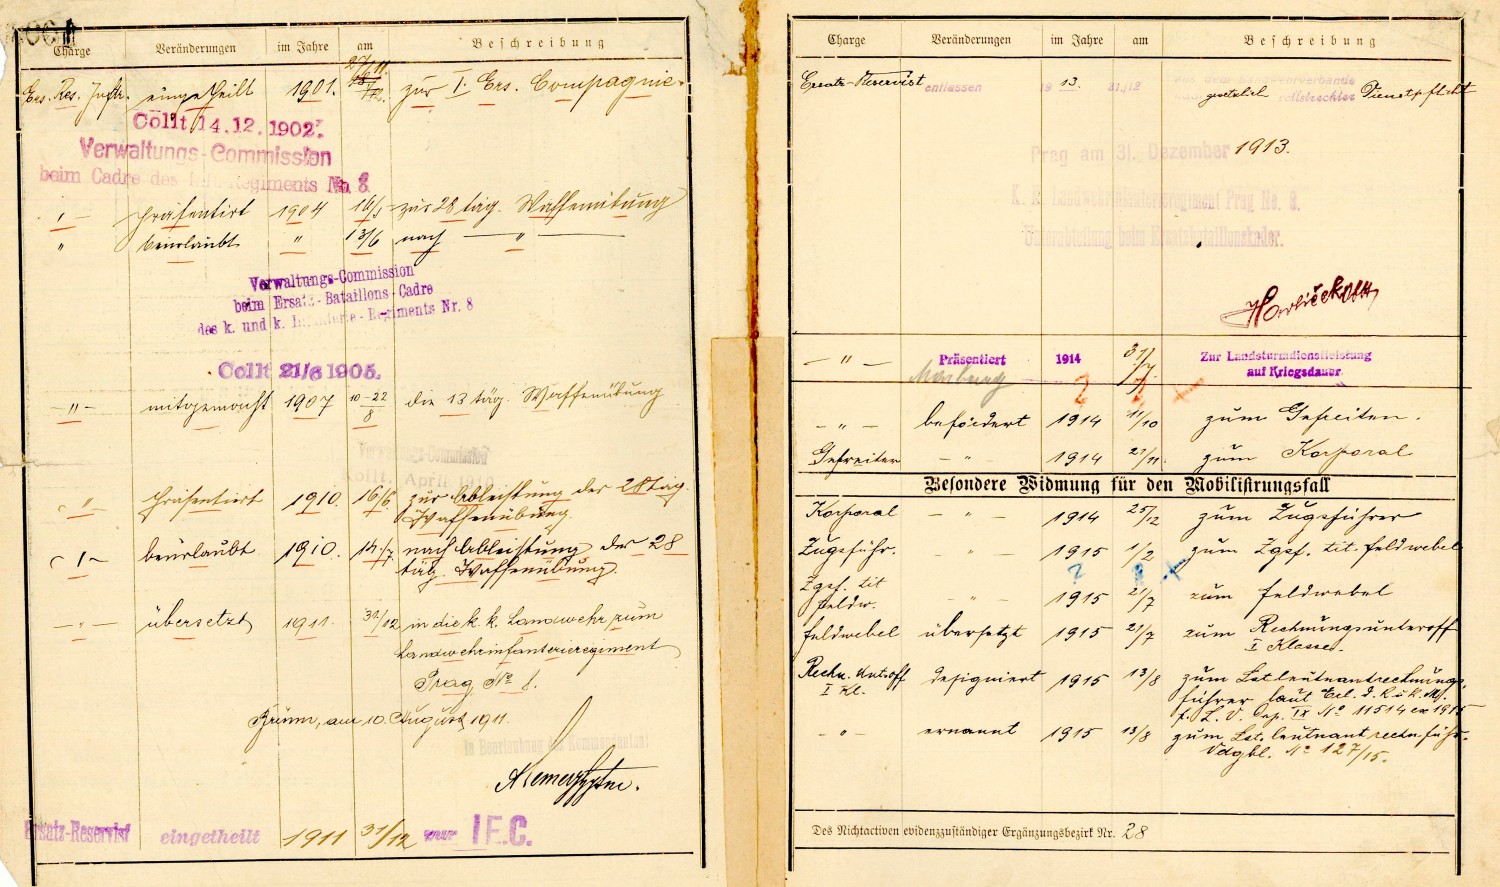 Charge Veränderungen im Jahre am Beschreibung
Ers. Res. Inftr. eingetheilt 1901. zur I. Ers. Compagnie.
Collt 14.12.1902.
Verwaltungs-Commission
beim Cadre des Inft. Regiments No. 8.
" präsentirt 1904 16/5 zur 28 täg. Waffenübung
" beurlaubt " 13/6 nach "
Verwaltungs-Commission
beim Ersatz-Bataillons-Cadre
des k. und k. Infanterie-Regiments Nr. 8
Collt 21/6 1905.
" mitgemacht 1907 10-22/8 die 13 täg. Waffenübung
Verwaltungs-Commission
Collt. April 1910
" präsentiert 1910. 16/6 zur Ableistung der 28 täg.
Waffenübung.
" beurlaubt 1910. 14/7 nach Ableistung der 28
täg. Waffenübung.
" übersetzt 1911. 31/12 in die k.k. Landwehr zum
Landwehrinfanterieregiment
Prag No 8.
Brünn, am 10. August 1911.
In Beurlaubung des Kommandanten
Ersatz-Reservist eingetheilt 1911 31/12 zur I E.C.
Charge Veränderungen im Jahre am Beschreibung
Ersatz-Reservist entlassen 1913. 31./12
gesetzlich vollstreckter Dienstpflicht
Prag am 31. Dezember 1913.
K. k. Landwehrinfanterieregiment Prag No. 8.
Unterabteilung beim Ersatzbataillonskader.
" Präsentiert 1914 31/7. Zur Landsturmdienstleistung
auf Kriegsdauer.
Marburg
" befördert 1914 11/10 zum Gefreiten.
Gefreiter " 1914 21/11. zum Korporal
Besondere Widmung für den Mobilisirungsfall
Korporal " 1914 25/12 zum Zugsführer
Zugsführ. " 1915 1/2 zum Zgsf. tit. Feldwebel
Zgsf. tit
Feldw. " 1915 21/7 zum Feldwebel
Feldwebel übersetzt 1915 21/7 zum Rechnungsunteroff
I Klasse.
Rechn. Unt.off
I Kl. designiert 1915 13/8 zum Lst. leutnantrechnungs.
führer laut Erl. d. K. u. k. M.
f. L. V. Dep. IX No 11514 ex 1915
" ernannt 1915 13/8 zum Lst. leutnantrechn. führ.
Vdgbl. No 127/15.
Des Nichtactiven evidenzzuständiger Ergänzungsbezirk Nr. 28